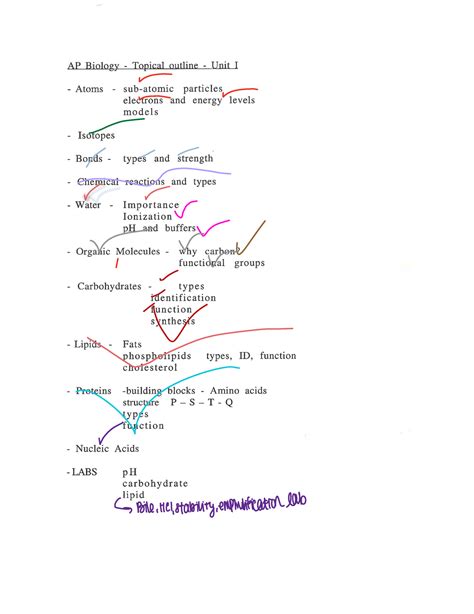 AP Biology - Topical outline - Unit I
- Atoms - sub-atomic particles
electrons and energy levels
models
- Isotopes
- Bonds - types and strength
- Chemical reactions and types
- Water - Importance
Ionization
pH and buffers
- Organic Molecules - why carbon
functional groups
- Carbohydrates - types
identification
function
synthesis
- Lipids - Fats
phospholipids types, ID, function
cholesterol
- Proteins -building blocks - Amino acids
structure P – S – T - Q
types
function
- Nucleic Acids
-LABS pH
carbohydrate
lipid
Bile, HCl, stability, emulsification lab